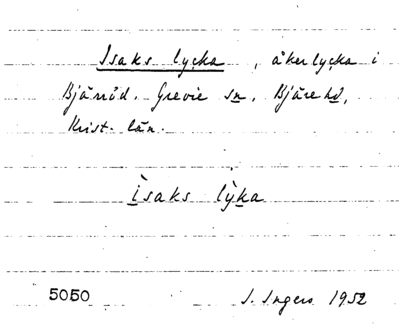 Isaks lycka, åkerlycka i
Bjäröd. Grevie sn. Bjäre hd,
Krist. län.
ìsaks lỳka
5050 I. Ingers 1952